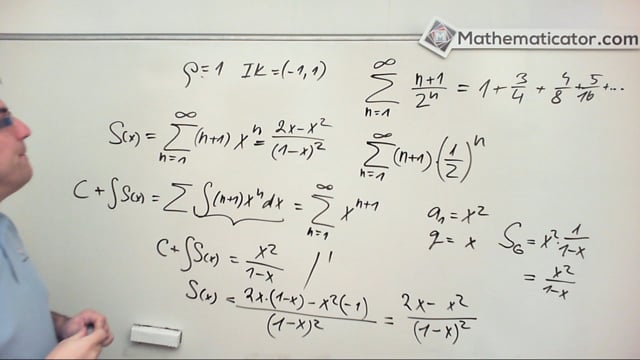 Mathematicator.com
ρ=1 IK=(-1,1)
∑_{n=1}^{∞} (n+1)/2^n = 1 + 3/4 + 4/8 + 5/16 + ...
S(x) = ∑_{n=1}^{∞} (n+1) x^n = (2x-x^2)/(1-x)^2
∑_{n=1}^{∞} (n+1) (1/2)^n
C + ∫S(x) = ∑ ∫(n+1)x^n dx = ∑_{n=1}^{∞} x^{n+1}
a_1 = x^2
q = x
S_G = x^2 · 1/(1-x)
= x^2/(1-x)
C + ∫S(x) = x^2/(1-x) /'
S(x) = (2x·(1-x) - x^2(-1))/(1-x)^2 = (2x - x^2)/(1-x)^2